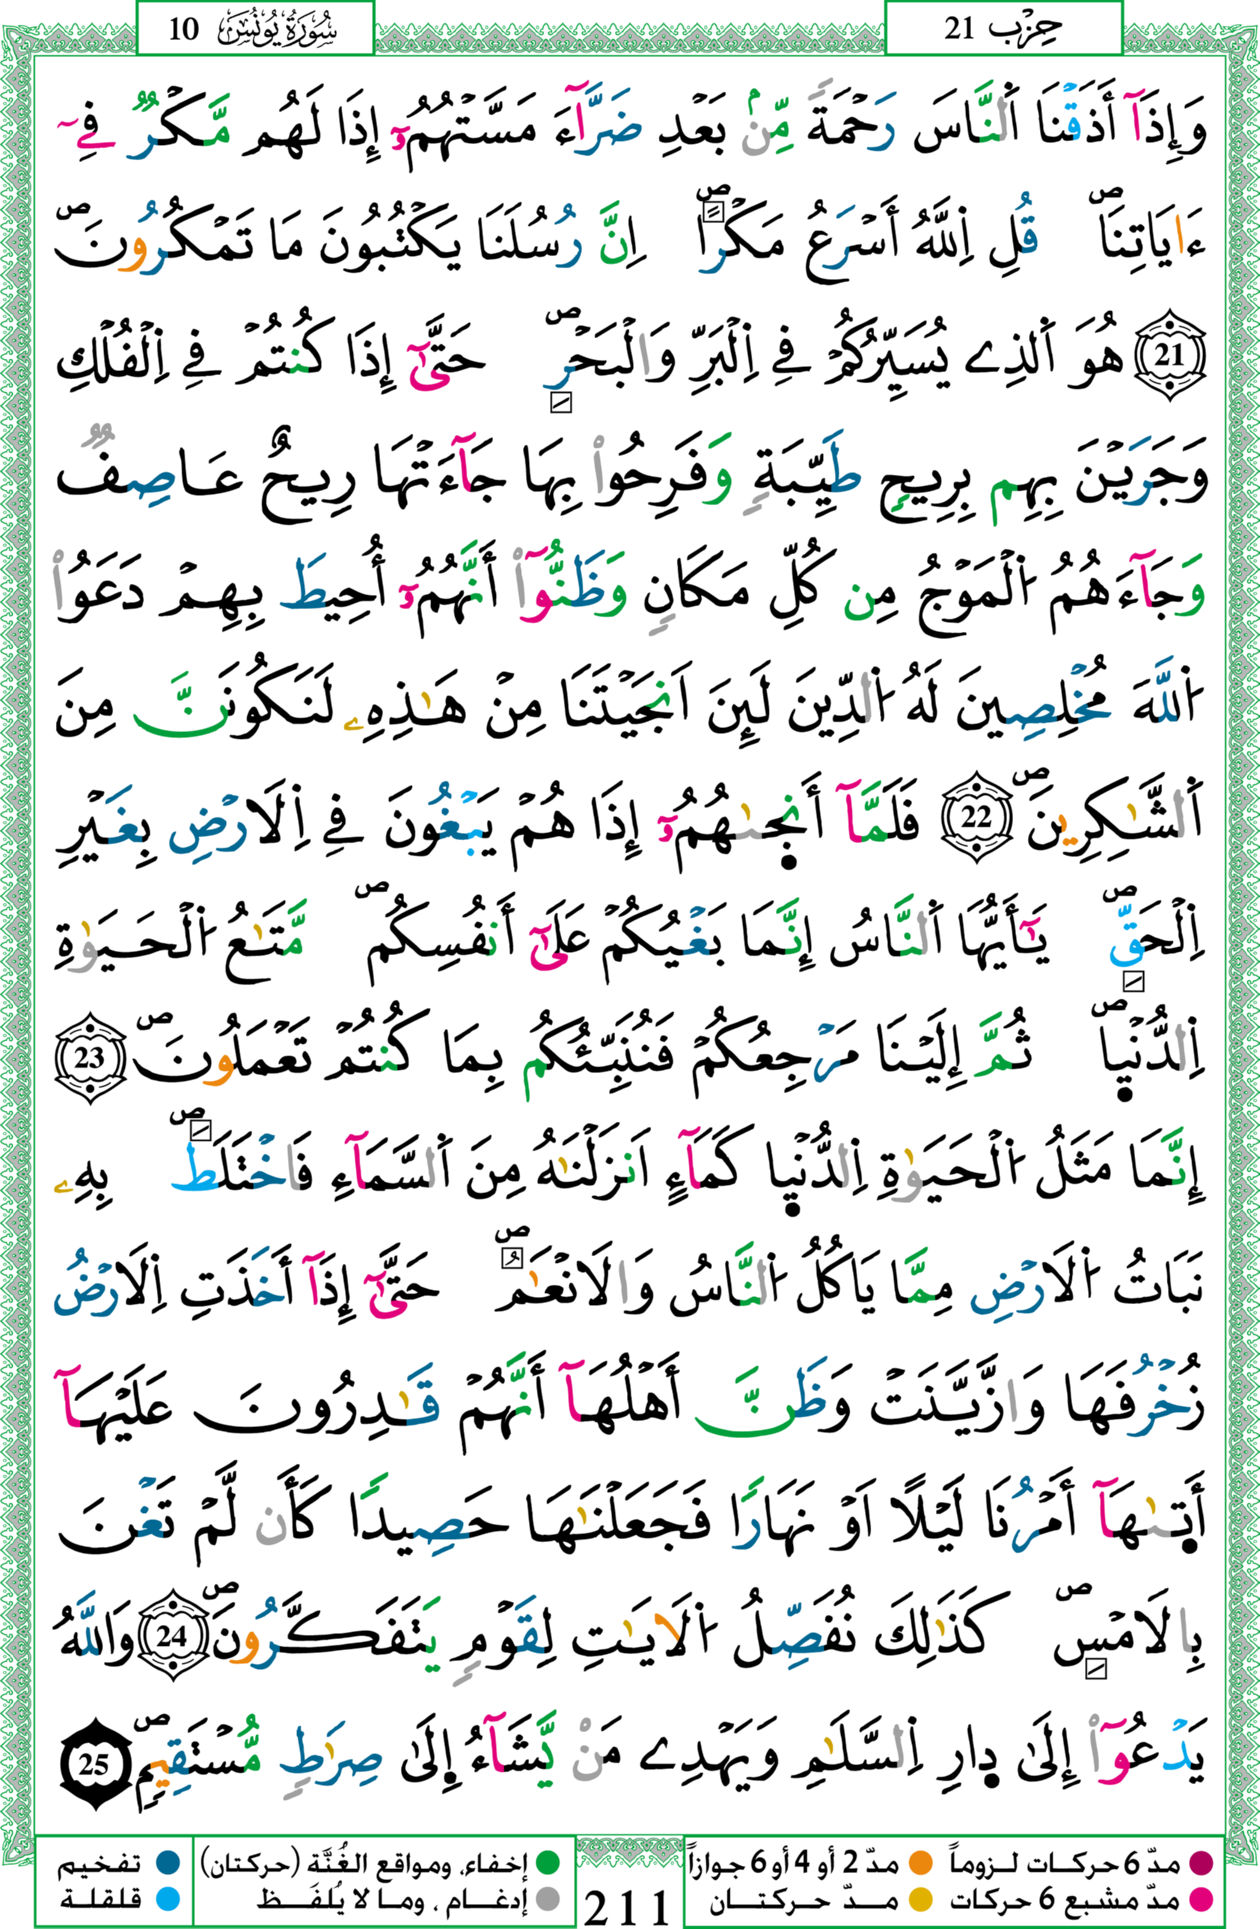 سُورَةُ يُونُسَ 10
حِزْب 21
وَإِذَآ أَذَقْنَا اَ۬لنَّاسَ رَحْمَةٗ مِّنۢ بَعْدِ ضَرَّآءَ مَسَّتْهُمُۥٓ إِذَا لَهُم مَّكْرٞ فِےٓ
ءَايَاتِنَاۖ قُلِ اِ۬للَّهُ أَسْرَعُ مَكْراًۖ اِنَّ رُسُلَنَا يَكْتُبُونَ مَا تَمْكُرُونَۖ
21 هُوَ اَ۬لذِے يُسَيِّرُكُمْ فِے اِ۬لْبَرِّ وَالْبَحْرِۖ حَتَّىٰٓ إِذَا كُنتُمْ فِے اِ۬لْفُلْكِ
وَجَرَيْنَ بِهِم بِرِيحٖ طَيِّبَةٖ وَفَرِحُواْ بِهَا جَآءَتْهَا رِيحٌ عَاصِفٞ
وَجَآءَهُمُ اُ۬لْمَوْجُ مِن كُلِّ مَكَانٖ وَظَنُّوٓاْ أَنَّهُمُۥٓ أُحِيطَ بِهِمْ دَعَوُاْ
اُ۬للَّهَ مُخْلِصِينَ لَهُ اُ۬لدِّينَ لَئِنَ اَنجَيْتَنَا مِنْ هَٰذِهِۦ لَنَكُونَنَّ مِنَ
اَ۬لشَّٰكِرِينَۖ 22 فَلَمَّآ أَنج۪ىٰهُمُۥٓ إِذَا هُمْ يَبْغُونَ فِے اِ۬لَارْضِ بِغَيْرِ
اِ۬لْحَقِّۖ يَٰٓأَيُّهَا اَ۬لنَّاسُ إِنَّمَا بَغْيُكُمْ عَلَىٰٓ أَنفُسِكُمۖ مَّتَٰعُ اُ۬لْحَيَوٰةِ
اِ۬لدُّنْي۪اۖ ثُمَّ إِلَيْنَا مَرْجِعُكُمْ فَنُنَبِّئُكُم بِمَا كُنتُمْ تَعْمَلُونَۖ 23
إِنَّمَا مَثَلُ اُ۬لْحَيَوٰةِ اِ۬لدُّنْي۪ا كَمَآءٍ اَنزَلْنَٰهُ مِنَ اَ۬لسَّمَآءِ فَاخْتَلَطَۖ بِهِۦ
نَبَاتُ اُ۬لَارْضِ مِمَّا يَاكُلُ اُ۬لنَّاسُ وَالَانْعَٰمُۖ حَتَّىٰٓ إِذَآ أَخَذَتِ اِ۬لَارْضُ
زُخْرُفَهَا وَازَّيَّنَتْ وَظَنَّ أَهْلُهَآ أَنَّهُمْ قَٰدِرُونَ عَلَيْهَآ
أَت۪ىٰهَآ أَمْرُنَا لَيْلًا اَوْ نَهَارٗا فَجَعَلْنَٰهَا حَصِيدٗا كَأَن لَّمْ تَغْنَ
بِالَامْسِۖ كَذَٰلِكَ نُفَصِّلُ اُ۬لَايَٰتِ لِقَوْمٖ يَتَفَكَّرُونَۖ 24 وَاللَّهُ
يَدْعُوٓاْ إِلَىٰ د۪ارِ اِ۬لسَّلَٰمِ وَيَهْدِے مَنْ يَّشَآءُ إِلَىٰ صِرَٰطٖ مُّسْتَقِيمٖۖ 25
مدّ 6 حركات لزوماً مدّ 2 أو 4 أو 6 جوازاً
إخفاء، ومواقع الغُنَّة (حركتان) تفخيم
مدّ مشبع 6 حركات مدّ حركتان
إدغام ، وما لا يُلفَظ قلقلة
211